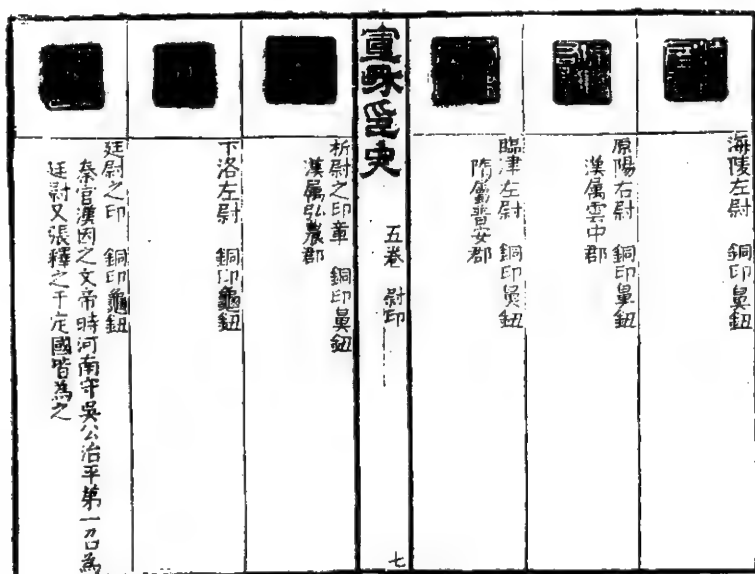 海陵左尉 銅印鼻鈕
原陽右尉 銅印鼻鈕
漢屬雲中郡
臨津左尉 銅印鼻鈕
隋屬晋安郡
宣和印史 五卷 尉印 七
析尉之印章 銅印鼻鈕
漢屬弘農郡
下洛左尉 銅印龜鈕
廷尉之印 銅印龜鈕
秦官漢因之文帝時河南守吳公治平第一召為
廷尉又張釋之于定國皆為之